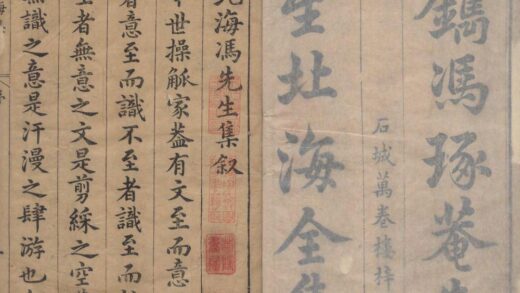 鐫馮琢菴
生北海全集
石城萬卷樓梓
北海馮先生集叙
世操觚家葢有文至而意
者意至而識不至者識至而
者無意之文是剪綵之空
無識之意是汗漫之肆游也